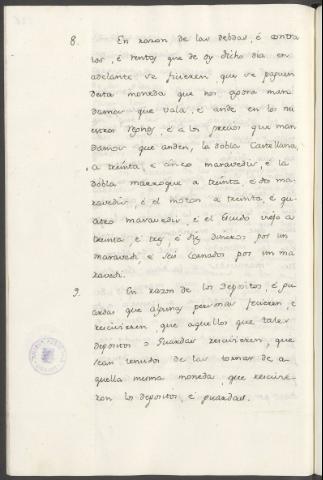 8. En razon de las debdas, é contra
tos, é rentas que de oy dicho dia en
adelante se ficieren, que se paguen
desta moneda que nos agora man
damos que vala, é ande en los nu
estros regnos, é a los precios que man
damos que anden, la dobla Castellana,
a treinta, e cinco maravedis, é la
dobla marroqui a treinta é dos ma
ravedis, é el moton a treinta é qu
atro maravedis, é el Escudo viejo a
treinta é tres, é diez dineros por un
maravedi é seis cornados por un ma
ravedi.
9. En razon de los depositos, é gu
ardas que algunas personas ficieren, é
recivieren, que aquellos que tales
depositos o Guardas recivieren, que
sean tenudos de las tornar de a
quella mesma moneda, que recivie
ron los depositos, é guardas.